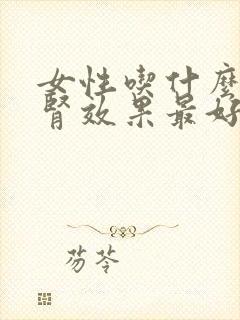 女性喫什麼
腎效果最好
芴苓